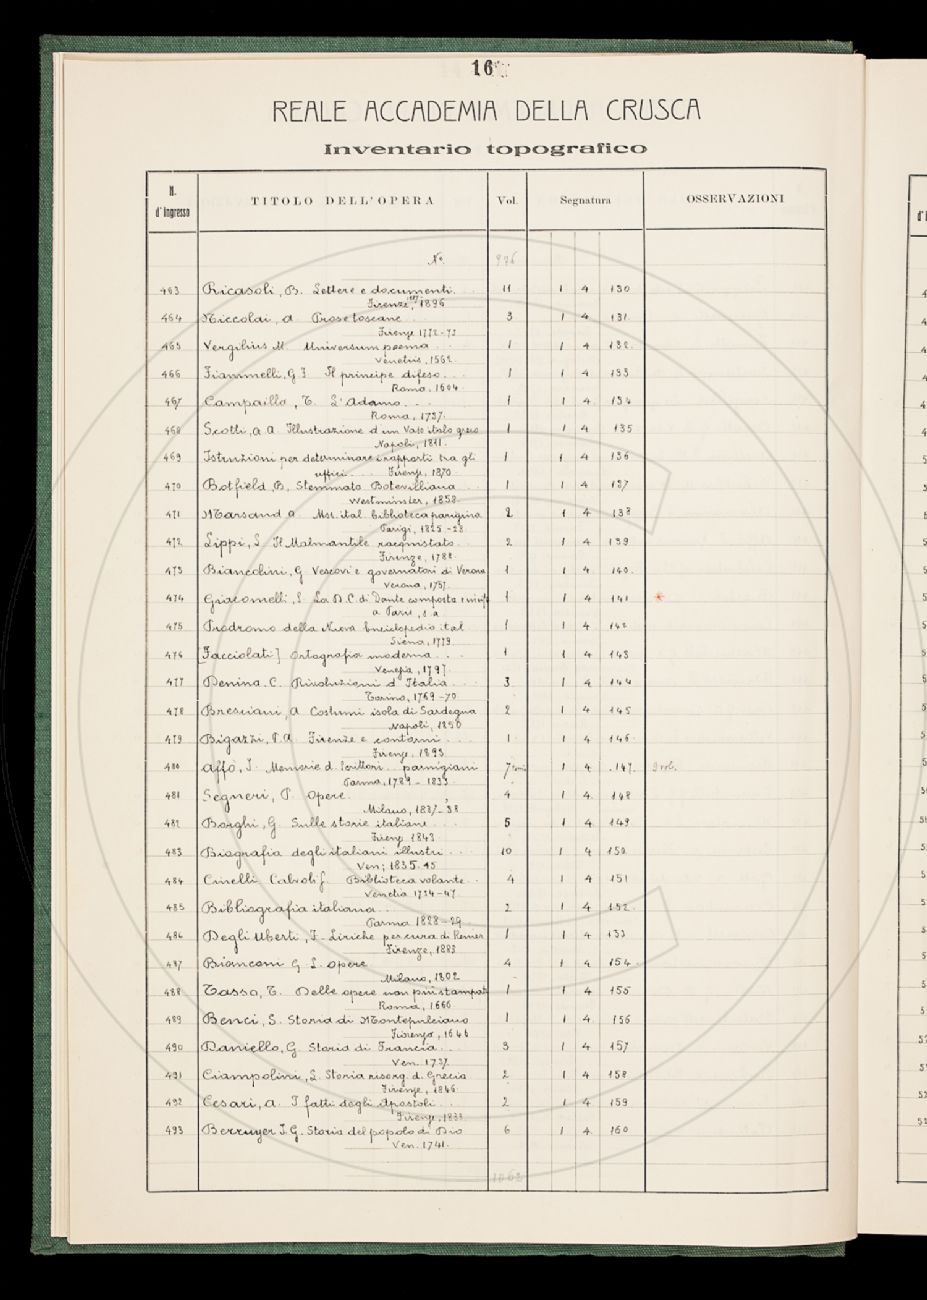 16
REALE ACCADEMIA DELLA CRUSCA
Inventario topografico
N. d'Ingresso TITOLO DELL'OPERA Vol. Segnatura OSSERVAZIONI
No. 976
463 Ricasoli, B. Lettere e documenti. 11 1 4 130
Firenze, 1896
464 Niccolai, A. Prose toscane 3 1 4 131
Firenze 1772-73
465 Vergilius M. Universum poema 1 1 4 132
Venetiis, 1562
466 Fiammelli, G. F. Il principe difeso 1 1 4 133
Roma, 1604
467 Campailla, T. L'Adamo 1 1 4 134
Roma, 1737
468 Scotti, A. A. Illustrazione d'un Vaso italo greco 1 1 4 135
Napoli, 1811
469 Istruzioni per determinare i rapporti tra gli 1 1 4 136
uffici Firenze, 1870
470 Botfield, B. Stemmata Botevilliana 1 1 4 137
Westminster, 1858
471 Marsand A. Mss. ital. biblioteca parigina 2 1 4 138
Parigi, 1835-38
472 Lippi, L. Il Malmantile racquistato 2 1 4 139
Firenze, 1788
473 Biancolini, G. Vescovi e governatori di Verona 1 1 4 140
Verona, 1757
474 Giacomelli, L. La D. C. di Dante composta 1 1 4 141 *
a Paris, s.a.
475 Prodromo della Nuova Enciclopedia ital. 1 1 4 142
Siena, 1779
476 [Facciolati] Ortografia moderna 1 1 4 143
Venezia, 1797
477 Denina C. Rivoluzioni d'Italia 3 1 4 144
Torino, 1769-70
478 Bresciani, A. Costumi isola di Sardegna 2 1 4 145
Napoli, 1850
479 Bigazzi, P. A. Firenze e contorni 1 1 4 146
Firenze, 1893
480 Affò, I. Memorie d. Scrittori parmigiani 7 1 4 147 9 vol.
Parma, 1789-1833
481 Segneri, P. Opere. 4 1 4 148
Milano, 1837-38
482 Borghi, G. Sulle storie italiane 5 1 4 149
Firenze 1843
483 Biografia degli italiani illustri 10 1 4 150
Ven; 1835-45
484 Cinelli Calvoli G. Biblioteca volante 4 1 4 151
Venetia 1734-47
485 Bibliografia italiana 2 1 4 152
Parma 1828-29
486 Degli Uberti, F. Liriche per cura di Renier 1 1 4 153
Firenze, 1883
487 Bianconi G. L. Opere 4 1 4 154
Milano, 1802
488 Tasso, T. Delle opere non più stampate 1 1 4 155
Roma, 1666
489 Benci, S. Storia di Montepulciano 1 1 4 156
Fiorenza, 1646
490 Daniello, G. Storia di Francia 3 1 4 157
Ven. 1737
491 Ciampolini, L. Storia risorg. d. Grecia 2 1 4 158
Firenze, 1846
492 Cesari, A. I fatti degli Apostoli 2 1 4 159
Firenze, 1833
493 Berruyer I. G. Storia del popolo di Dio 6 1 4 160
Ven. 1741
1062